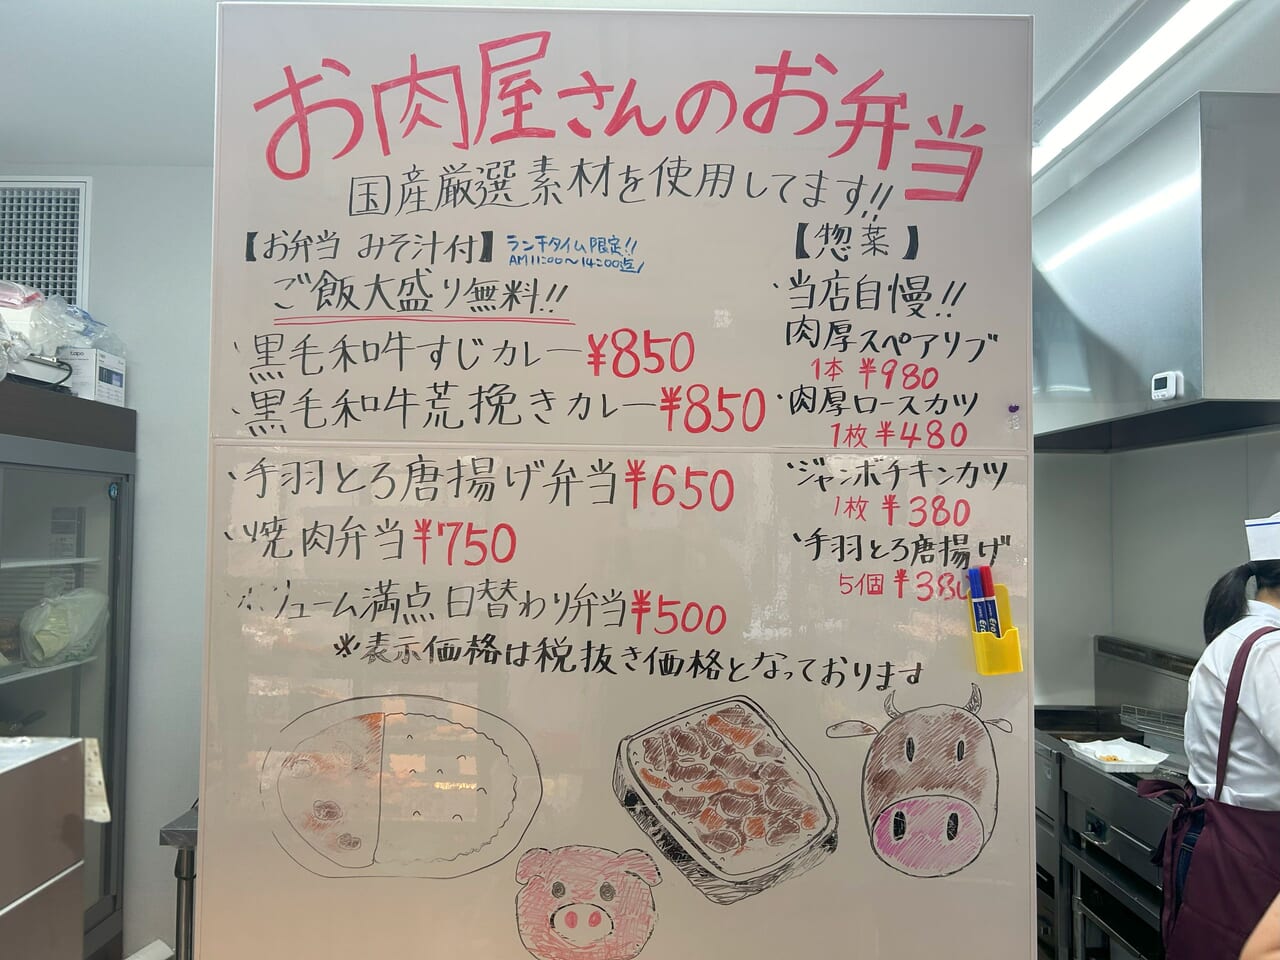 お肉屋さんのお弁当
国産厳選素材を使用してます!!
【お弁当 みそ汁付】
ランチタイム限定!!
AM11:00〜14:00迄
ご飯大盛り無料!!
・黒毛和牛すじカレー ¥850
・黒毛和牛荒挽きカレー ¥850
・手羽とろ唐揚げ弁当 ¥650
・焼肉弁当 ¥750
ボリューム満点日替わり弁当 ¥500
※表示価格は税抜き価格となっております
【惣菜】
・当店自慢!!
肉厚スペアリブ
1本 ¥980
・肉厚ロースカツ
1枚 ¥480
・ジャンボチキンカツ
1枚 ¥380
・手羽とろ唐揚げ
5個 ¥380
tapo